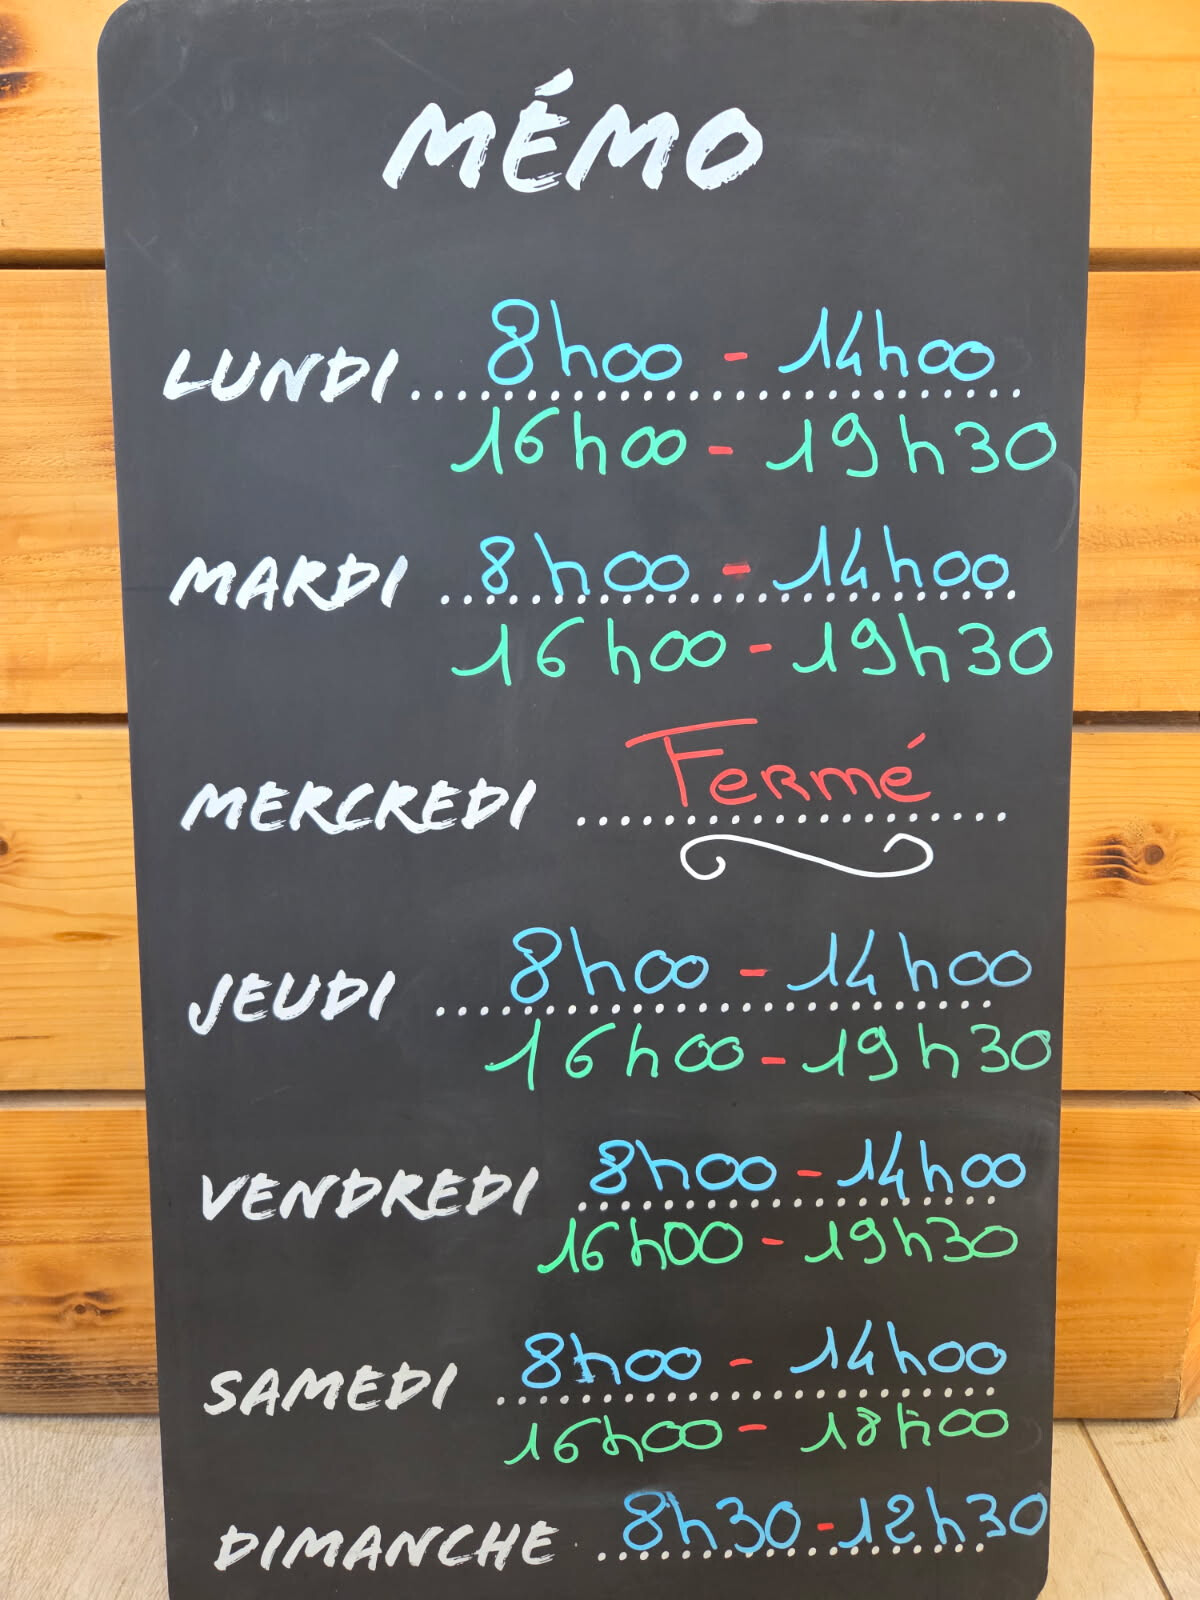 MÉMO
LUNDI 8h00 - 14h00
16h00 - 19h30
MARDI 8h00 - 14h00
16h00 - 19h30
MERCREDI Fermé
JEUDI 8h00 - 14h00
16h00 - 19h30
VENDREDI 8h00 - 14h00
16h00 - 19h30
SAMEDI 8h00 - 14h00
16h00 - 18h00
DIMANCHE 8h30 - 12h30